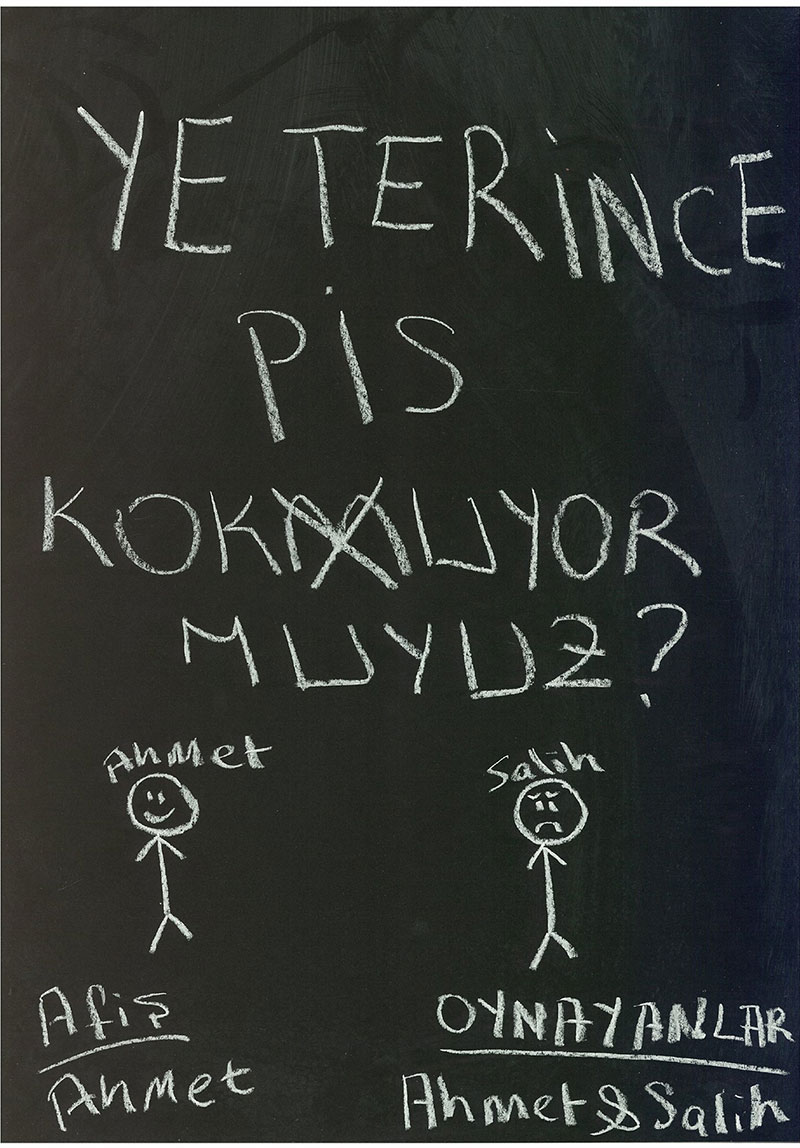 YETERİNCE
PİS
KOKUYOR
MUYUZ?
Ahmet Salih
Afiş
Ahmet
OYNAYANLAR
Ahmet & Salih